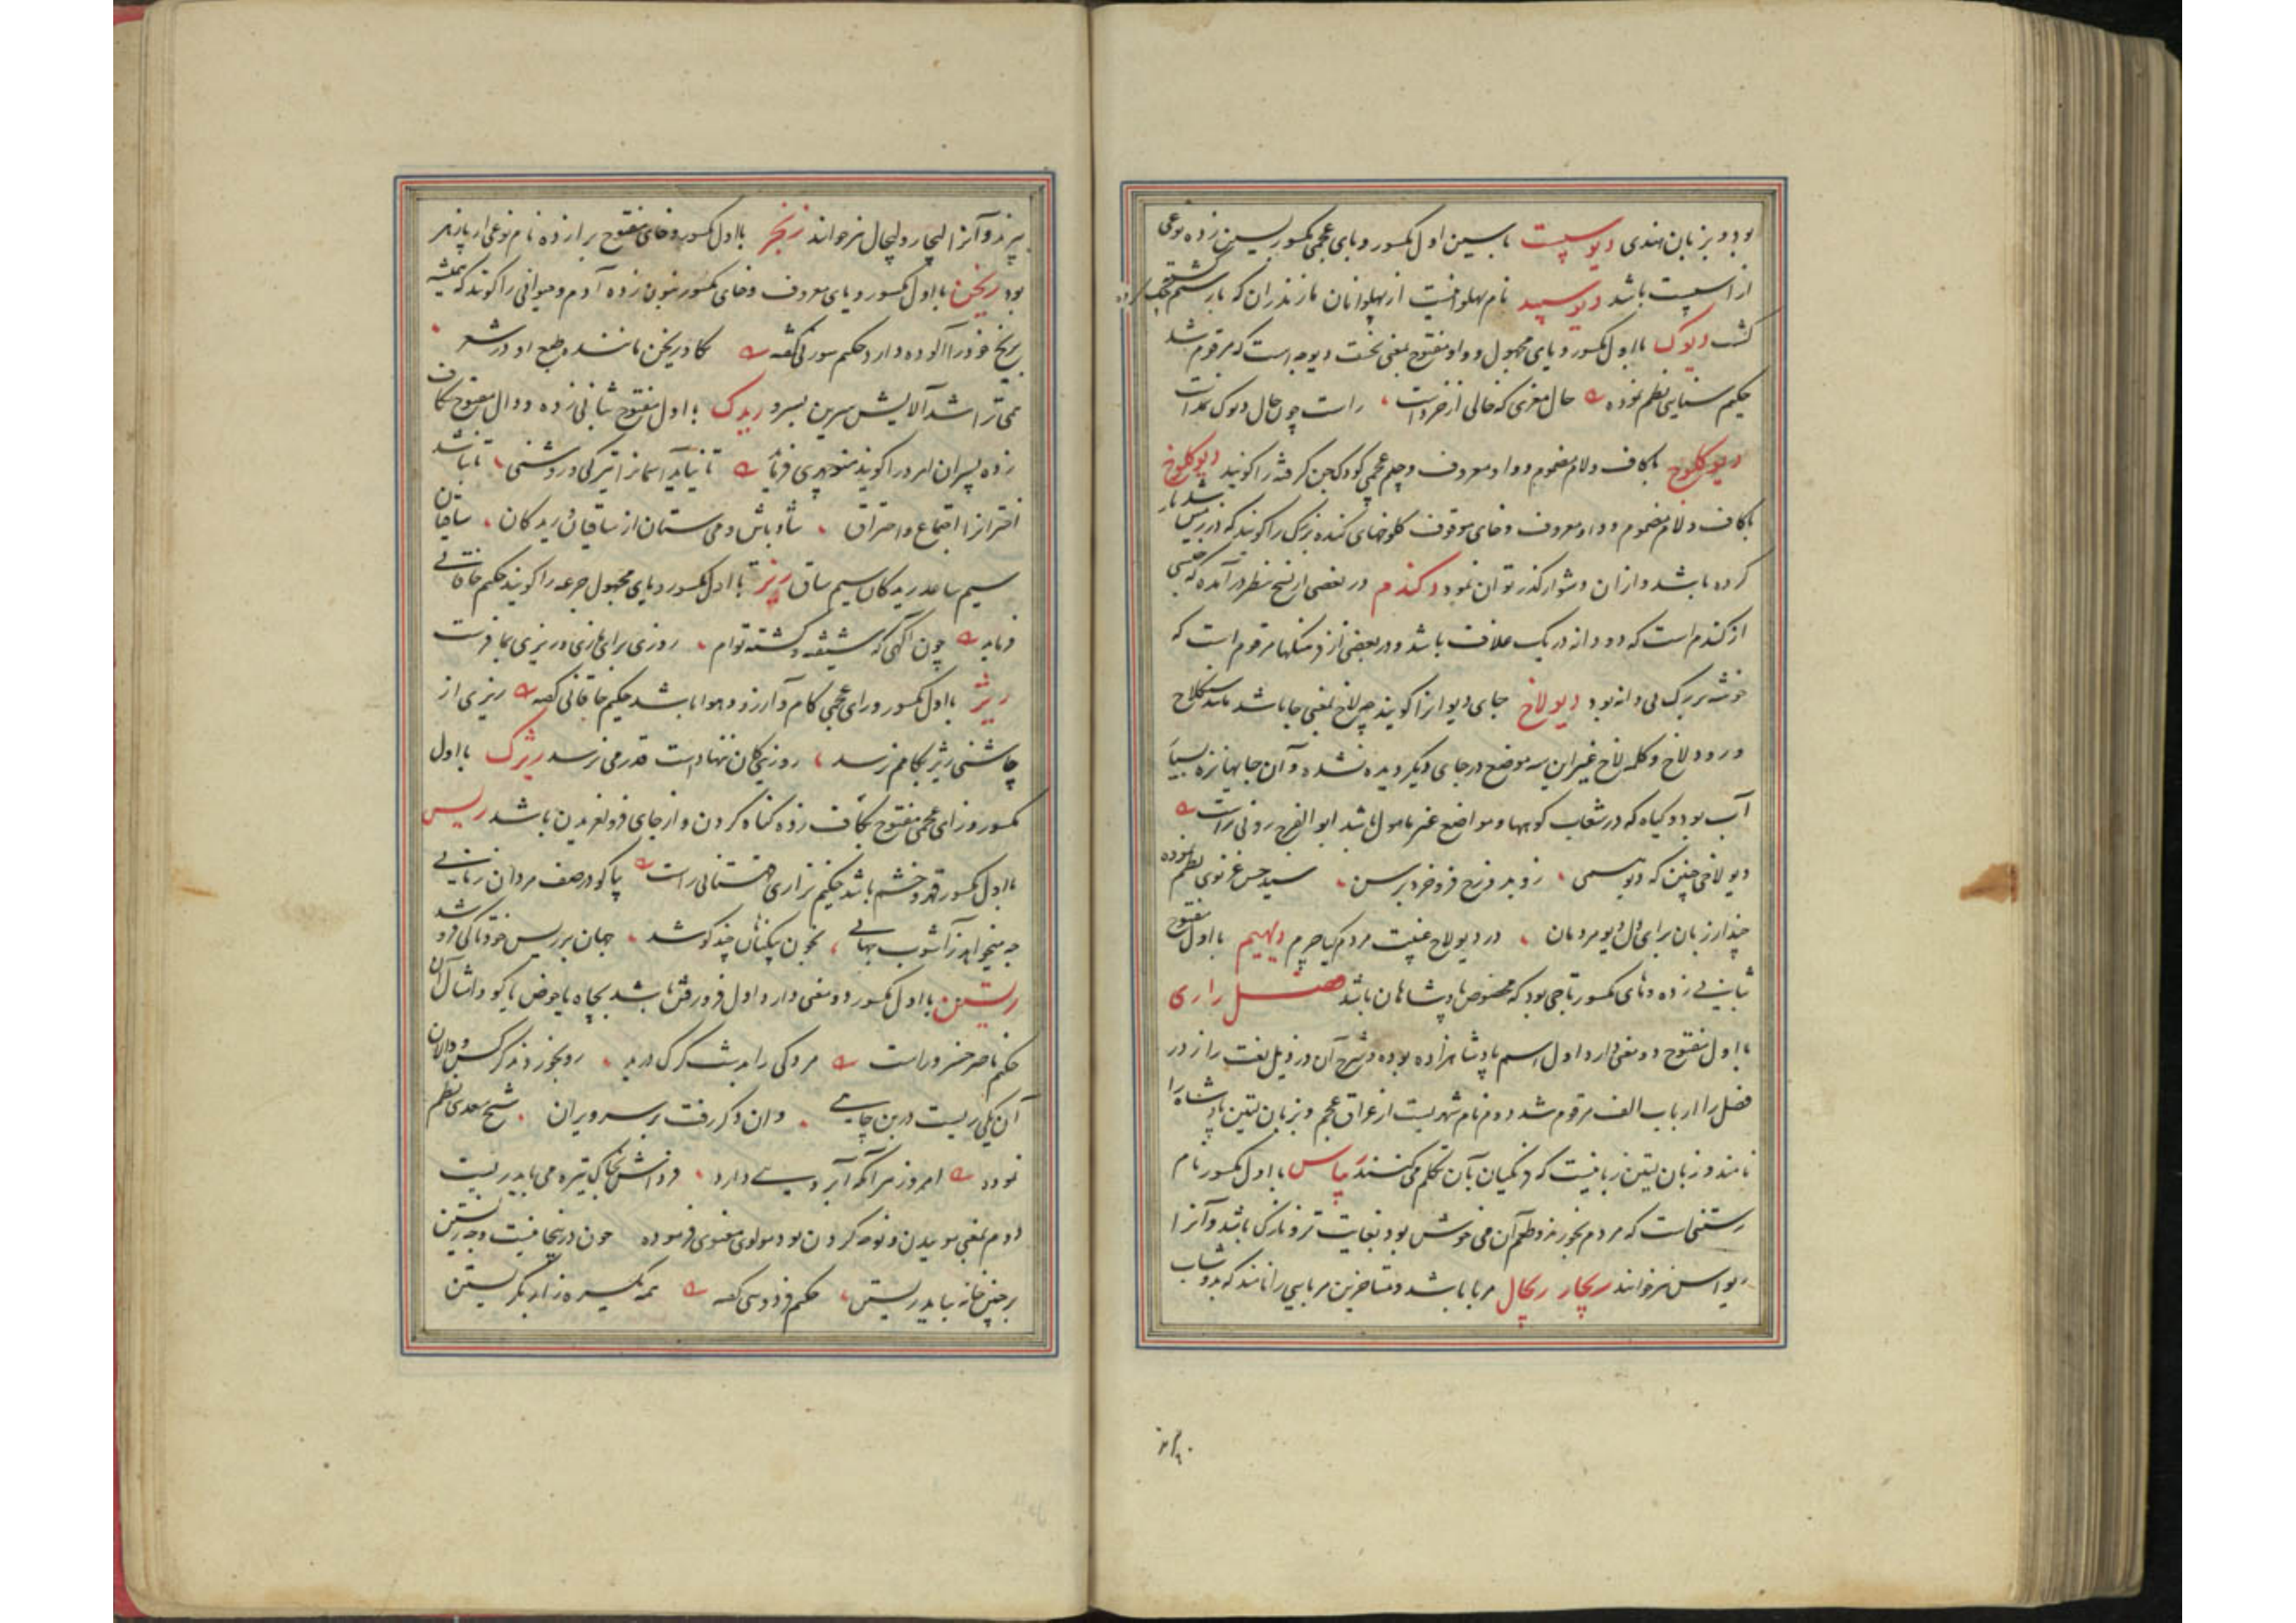 بود و بزبان هندی دیوسپست باسین اول مکسور و بای عجمی مکسور بسین زده نوعی
از اسپست باشد دیو سپید نام پهلوانیست از پهلوانان مازندران که بارستم جنگ کرده
کشته دیوک بااول مکسور و یای مجهول و واو مفتوح بمعنی نخست دیوجه است که مرقوم شد
حکیم سنایی نظم نموده حال مغزی که خالی از خرد است راست چون حال دیوک و نمد است
دیوکلوچ باکاف و لام مضموم و واو معروف و جیم عجمی کودک جن گرفته را گویند دیوکلوخ
باکاف و لام مضموم و واو معروف و خای موقوف کلوخهای کنده بزرگ را گویند که در زمین شدیار
کرده باشد و ازان دشوار گذر توان نمود دو کندم در بعضی از نسخ بنظر در آمده که جنسی
از کندم است که دو دانه در یک غلاف باشد و در بعضی از فرهنگها مرقوم است که
خوشه بزرگ بی دانه بود دیولاخ جای دیوانرا گویند چه لاخ بمعنی جا باشد مانند سنگلاخ
و رودلاخ و کلمه لاخ غیر این سه موضع در جای دیگر دیده نشده و آن جایها نزه بسیار
آب بود و گیاه که در شعاب کوهها و مواضع غیر مامول باشد ابوالفرج رونی راست
دیولاخی چنین که دیو همی زو بدوزخ فرو خزد برسن سید حسن غزنوی نظم نموده
چندار زبان برای دل دیو مردمان در دیولاخ غیبت مردم گیا چرم دیهیم بااول مفتوح
بثانی زده و های مکسور تاجی بود که مخصوص پادشاهان باشد فصل رای
بااول مفتوح دو معنی دارد اول اسم پادشاهزاده بوده و شرح آن در ذیل لغت راز در
فصل را از باب الف مرقوم شد دوم نام شهریست از عراق عجم و بزبان لتین پادشاه را
نامند و زبان لتین زبانیست که فرنگیان بآن تکلم می کنند ریباس بااول مکسور نام
رستنی است که مردم بخورند و طعم آن می خوش بود بغایت تر و نازک باشد و آنرا
ریواس نیز خوانند ریچار ریچال مربا باشد و متاخرین مربایی را نامند که بدوشاب
پزند و آنرا لیچار و لیچال نیز خوانند ریخر بااول مکسور و خای مفتوح برا زده نام نوعی از پازهر
بود ریخن بااول مکسور و یای معروف و خای مکسور بنون زده آدم و حیوانی را گویند که همیشه
بریخ خود را آلوده دارد حکیم سوزنی گفته گاو ریخن ماننده طبع او در شعر
می تراشد آلایش سرین بسرو ریدک بااول مفتوح بثانی زده و دال مفتوح بکاف
زده پسران امرد را گویند منوچهری فرماید تا نیابد آسمانرا تیرگی و روشنی تا نباشد
اخترانرا اجتماع و احتراق شاد باش و می ستان از ساقیان و ریدکان ساقیان
سیم ساعد ریدکان سیم ساق ریز بااول مکسور و یای مجهول جرعه را گویند حکیم خاقانی
فرماید چون آگهی که شیفته و کشته توام روزی برای ما زی و ریزی بما فرست
ریژ بااول مکسور و زای عجمی کام و آرزو و هوا باشد حکیم خاقانی گفته ریزی از
چاشنی ریژ بکامم نرسد روزیی کان ننهاد است قدر می نرسد ریژک بااول
مکسور و زای عجمی مفتوح بکاف زده گناه کردن و از جای فرو لغزیدن باشد ریس
بااول مکسور قهر و خشم باشد حکیم نزاری قهستانی راست بپا کو در صف مردان زمانی
چه میخواهد ز آشوب جهانی بخون بیگناهان چند کوشد جهان بر ریس خود تا کی فروشد
ریستن بااول مکسور دو معنی دارد اول فرو رفتن باشد بچاه یا حوض یا کو و امثال آن
حکیم ناصر خسرو راست مردکی را بدشت گرگ درید زو بخوردند کرکس و دالان
آن یکی ریست در بن چاهی وان دگر رفت بر سر ویران شیخ سعدی نظم
نموده امروز مر آنکه آبرویی دارد فرداش بخاک تیره می باید ریست
دوم بمعنی موییدن و نوحه کردن بود مولوی معنوی فرموده چون در اینجا نیست وجه زیستن
بر چنین خانه بباید ریستن حکیم فردوسی گفته همه یکسره زار بگریستن